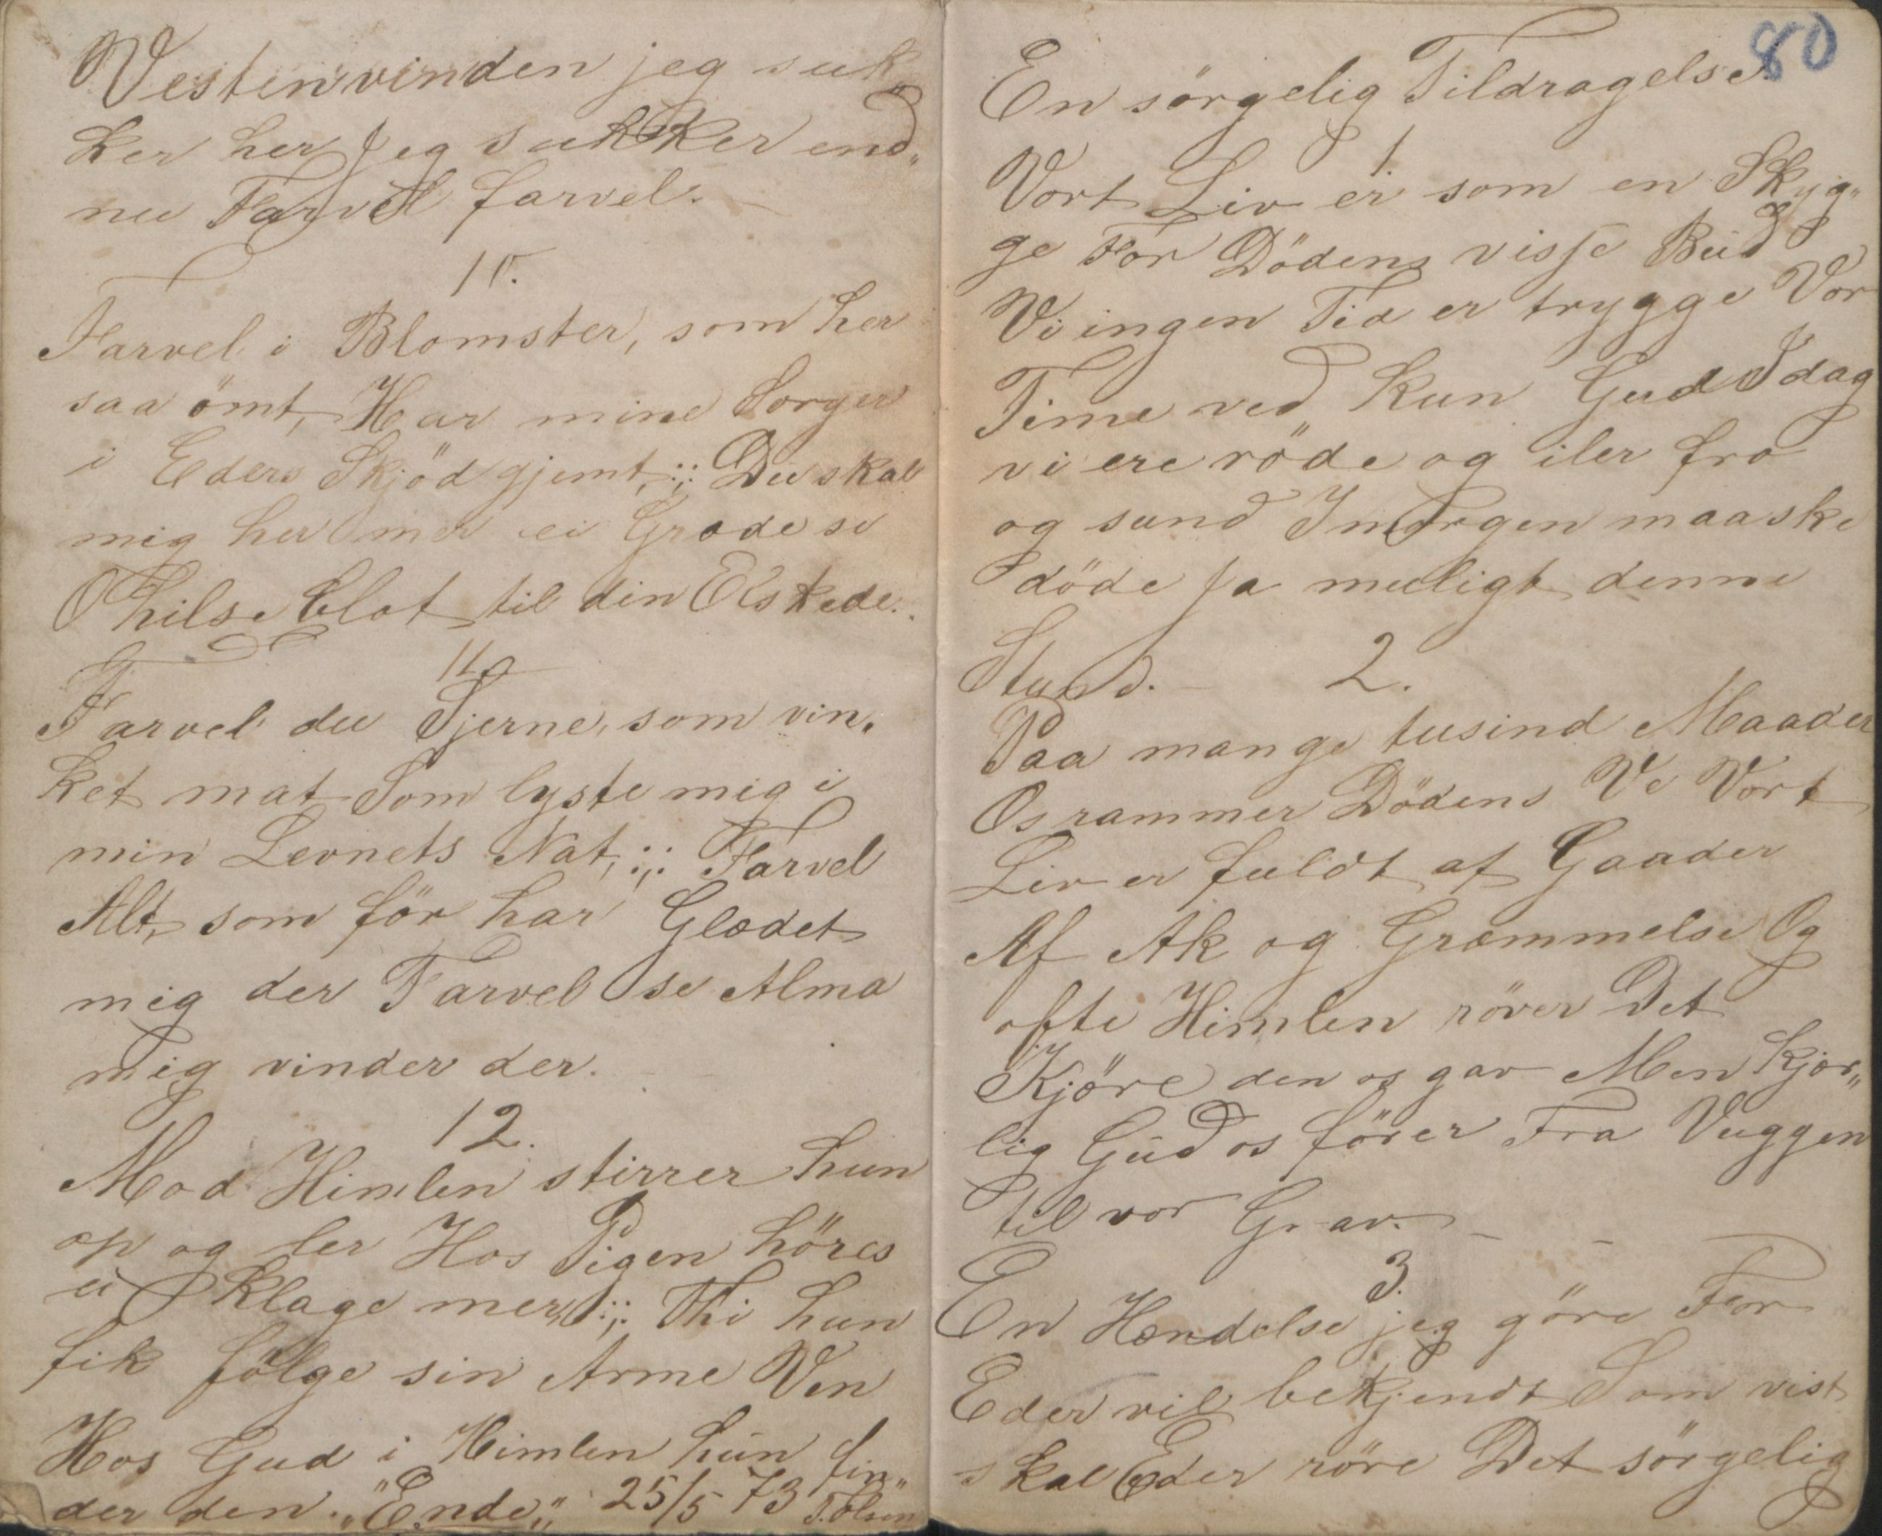 Vestenvinden jeg suk„
ker her Jeg sukker end„
nu Farvel farvel. —
10.
Farvel i Blomster, som her
saa ömt, Har mine Sorger
i Eders Skjöd gjemt, :;: Du skal
mig her mer ei Græde se
O hils blot til din Elskede.
11
Farvel du Stjerne, som vin„
ket mat Som lyste mig i
min Levnets Nat, :;: Farvel
Alt, som för har Glædet
mig der Farvel se Alma
mig vinder der.
12.
Mod Himlen stirrer hun
op og ler Hos Pigen höres
ei Klage mer, :;: Thi hun
fik fölge sin Arme Ven
Hos Gud i Himlen hun fin„
der den. „Ende„ 25/5 73 T. Olsen
80
En sörgelig Tildragelse.
1
Vort Liv er som en Skyg„
ge For Dödens visse Bud
Vi ingen Tid er trygge Vor
Time ved Kun Gud Idag
vi ere röde og iler fro
og sund Imorgen maaske
döde Ja muligt denne
Stund. — 2.
Paa mange tusind Maader
Os rammer Dödens Ve Vort
Liv er fuldt af Gaader
Af Ak og Græmmelse Og
ofte Himlen röver Det
Kjöre den os gav Men Kjær„
lig Gud os förer Fra Vuggen
til vor Grav. — —
3.
En Hændelse jeg göre For
Eder vil bekjendt Som vist
skal Eder röre Det sörgelig